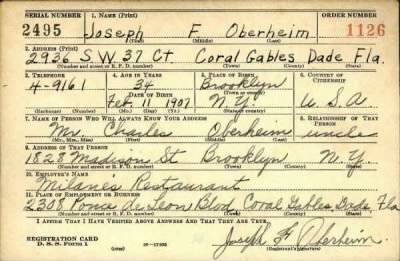 SERIAL NUMBER 1. NAME (Print) ORDER NUMBER
2495 Joseph F Oberheim 1126
(First) (Middle) (Last)
2. ADDRESS (Print)
2936 S W 37 Ct. Coral Gables Dade Fla.
(Number and street or R. F. D. number) (Town) (County) (State)
3. TELEPHONE 4. AGE IN YEARS 5. PLACE OF BIRTH 6. COUNTRY OF CITIZENSHIP
H-9161 34 Brooklyn
DATE OF BIRTH (Town or county)
Feb 11 1907 N.Y. U.S.A
(Exchange) (Number) (Mo.) (Day) (Yr.) (State or country)
7. NAME OF PERSON WHO WILL ALWAYS KNOW YOUR ADDRESS 8. RELATIONSHIP OF THAT PERSON
Mr. Charles Oberheim uncle
(Mr., Mrs., Miss) (First) (Middle) (Last)
9. ADDRESS OF THAT PERSON
1828 Madison St Brooklyn N.Y.
(Number and street or R. F. D. number) (Town) (County) (State)
10. EMPLOYER'S NAME
Milanes Restaurant
11. PLACE OF EMPLOYMENT OR BUSINESS
2308 Ponce de Leon Blvd Coral Gables, Dade, Fla
(Number and street or R. F. D. number) (Town) (County) (State)
I AFFIRM THAT I HAVE VERIFIED ABOVE ANSWERS AND THAT THEY ARE TRUE.
REGISTRATION CARD
D. S. S. Form 1 16-17105 Joseph F. Oberheim.
(Registrant's signature)